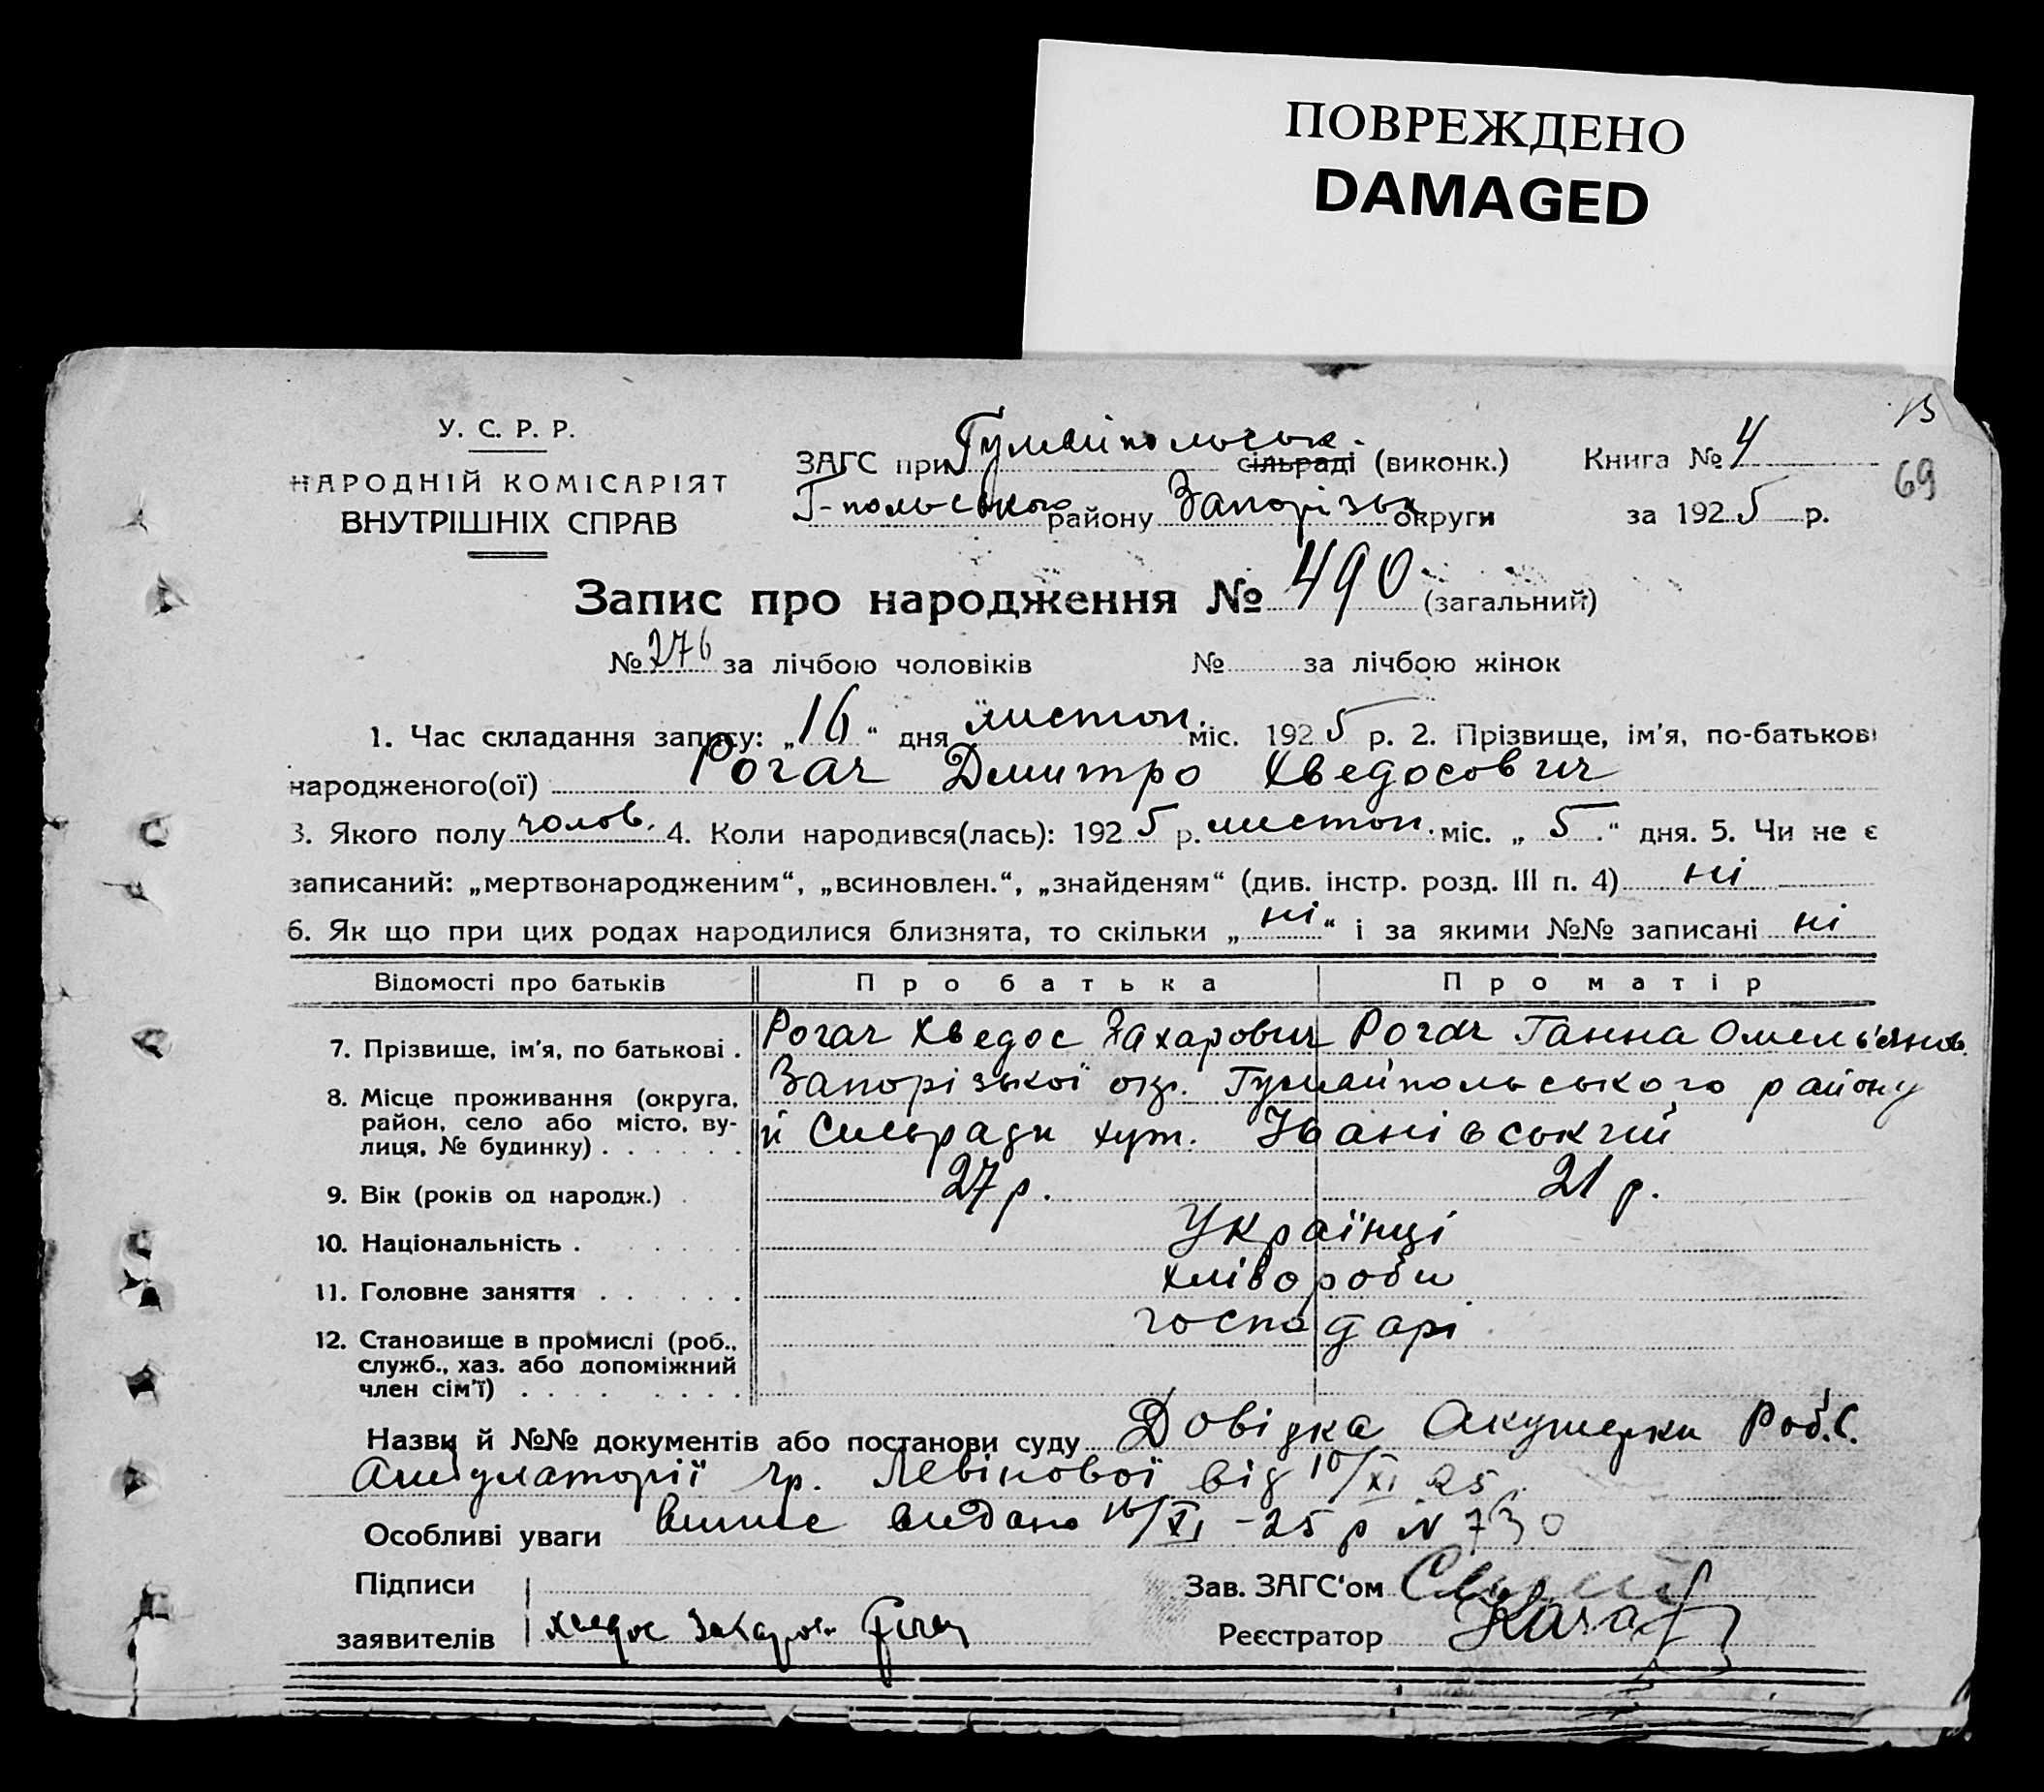 ПОВРЕЖДЕНО
DAMAGED
13
69
У. С. Р. Р.
НАРОДНІЙ КОМІСАРІЯТ
ВНУТРІШНІХ СПРАВ
ЗАГС при Гуляйпольськ. сільраді (виконк.)
Г-польського району Запорізьк округи
Книга № 4
за 1925 р.
Запис про народження № 490 (загальний)
№ 276 за лічбою чоловіків № за лічбою жінок
1. Час складання запису: „16“ дня листоп. міс. 1925 р. 2. Прізвище, ім'я, по-батькові
народженого(ої) Рогач Дмитро Хведосович
3. Якого полу чолов. 4. Коли народився(лась): 1925 р. листоп. міс. „5.“ дня. 5. Чи не є
записаний: „мертвонародженим“, „всиновлен.“, „знайденям“ (див. інстр. розд. III п. 4) ні
6. Як що при цих родах народилися близнята, то скільки „ні“ і за якими №№ записані ні
Відомості про батьків Про батька Про матір
7. Прізвище, ім'я, по батькові . Рогач Хведос Захарович Рогач Ганна Омель'янов.
8. Місце проживання (округа, район, село або місто, вулиця, № будинку) . . . . . . Запорізької окр. Гуляйпольського району
й Сильради хут. Іванівський
9. Вік (років од народж.) . 27 р. 21 р.
10. Національність . Українці
11. Головне заняття . . . . . . хлібороби
12. Становище в промислі (роб., служб., хаз. або допоміжний член сім'ї) . . . . . . . . господарі
Назви й №№ документів або постанови суду Довідка Акушерки Роб.С.
Амбулаторії гр. Левінової від 10/XI 25
Особливі уваги Випис видано 16/XI - 25 р N 730
Підписи
заявителів Хведос Захаров
Зав. ЗАГС'ом
Реєстратор